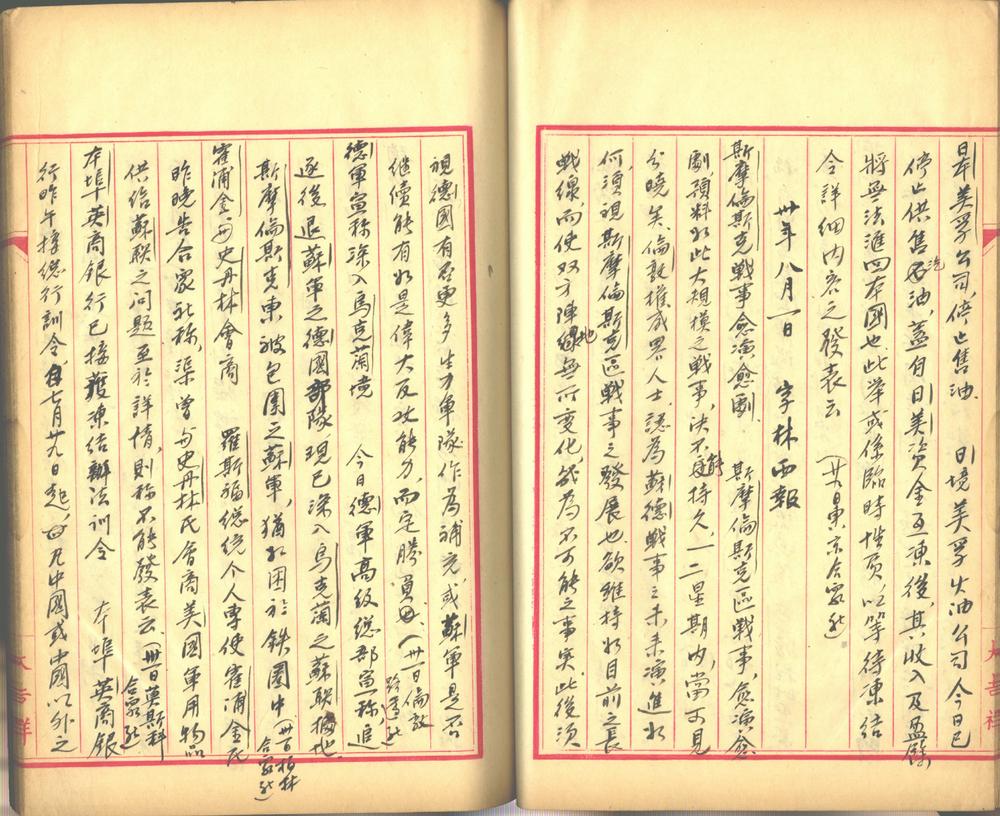 日本美孚公司，停止售油　　日境美孚火油公司今日已
停止供售汽油，蓋自日美資金互凍後，其收入及盈餘，
將無法滙回本國也。此舉或係臨時性質，以等待凍結
令詳細內容之發表云（廿日東京合眾社）
卅年八月一日　字林西報
斯摩倫斯克戰事愈演愈劇　斯摩倫斯克區戰事，愈演愈
劇，預料如此大規模之戰事，決不能持久，一二星期內，當可見
分曉矣，倫敦權威界人士，認為蘇德戰事之未來演進如
何，須視斯摩倫斯克區戰事之發展也，欲維持如目前之長
戰線，而使双方陣地無所變化，幾為不可能之事實，此後須
視德國有否更多生力軍隊作為補充，或蘇軍是否
継續能有如是偉大反攻能力，而定勝負（卅一日倫敦路透社）
德軍宣称深入烏克蘭境　今日德軍高級総部宣称，追
逐後退蘇軍之德國部隊，現已深入烏克蘭之蘇联據地
斯摩倫斯克東被包圍之蘇軍，猶如困於鉄圈中（卅一日柏林合眾社）
霍浦金与史丹林會商　羅斯福総統个人專使霍浦金氏
昨晚告合眾社称，渠曾与史丹林氏會商美國軍用物品
供给蘇联之问題至於詳情，則称不能發表云（卅一日莫斯科合眾社）
本埠英商銀行已接獲凍结辦法訓令　本埠英商銀
行昨午接総行訓令，自七月廿九日起，凡中國或中國以外之
大吉祥